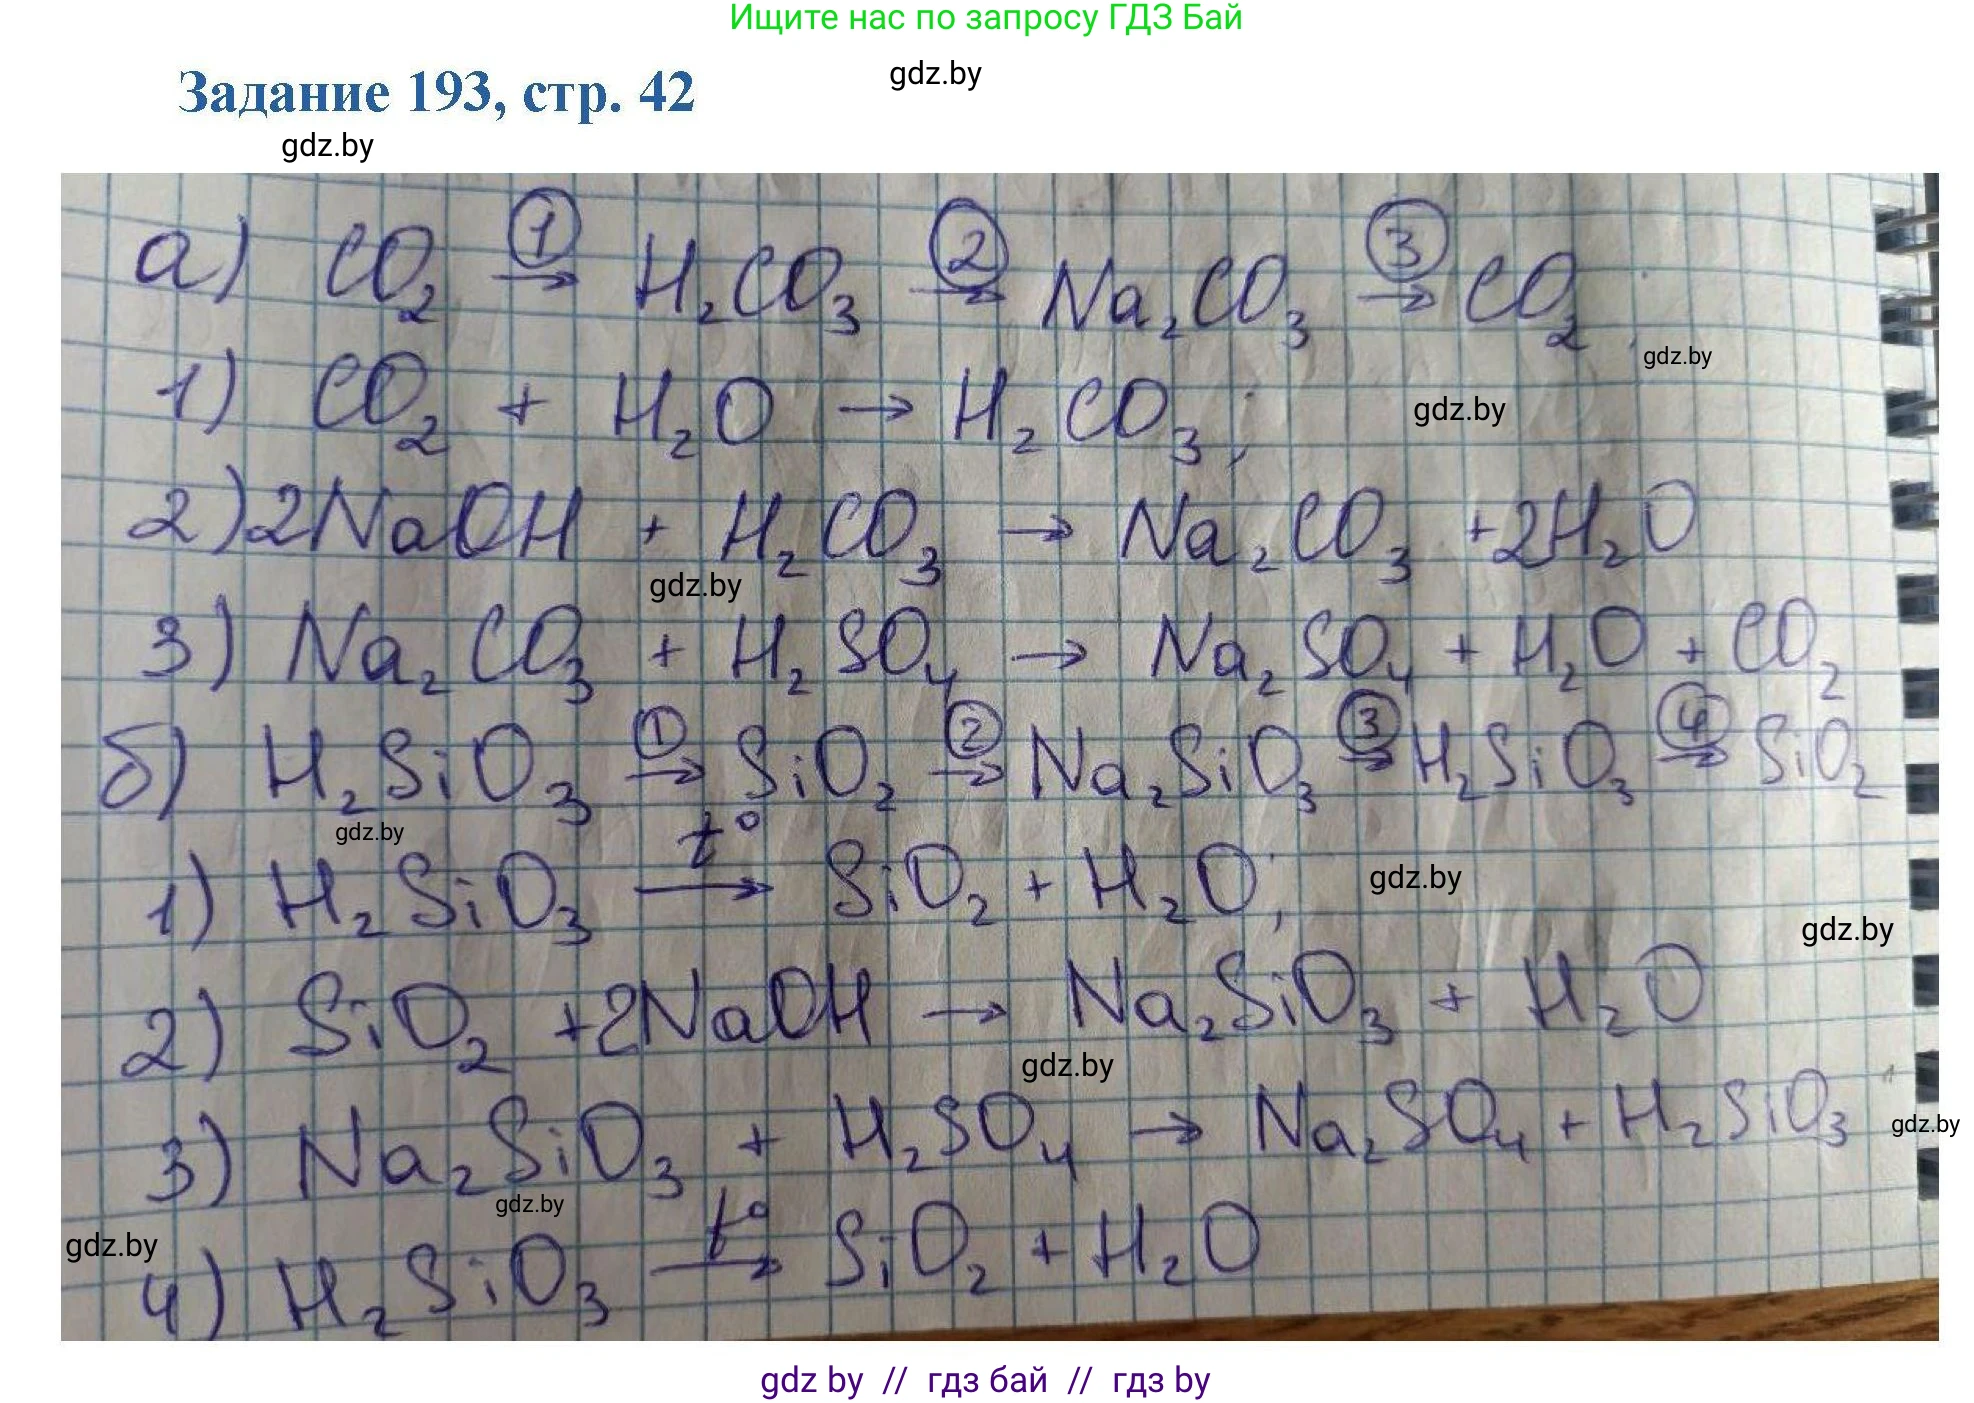 Ищите нас по запросу ГДЗ Бай
gdz.by
Задание 193, стр. 42
gdz.by
а) CO₂ →① H₂CO₃ →② Na₂CO₃ →③ CO₂;
gdz.by
1) CO₂ + H₂O → H₂CO₃;
gdz.by
2) 2NaOH + H₂CO₃ → Na₂CO₃ + 2H₂O
gdz.by
3) Na₂CO₃ + H₂SO₄ → Na₂SO₄ + H₂O + CO₂
б) H₂SiO₃ →① SiO₂ →② Na₂SiO₃ →③ H₂SiO₃ →④ SiO₂
gdz.by
1) H₂SiO₃ →t° SiO₂ + H₂O;
gdz.by
gdz.by
2) SiO₂ + 2NaOH → Na₂SiO₃ + H₂O
gdz.by
3) Na₂SiO₃ + H₂SO₄ → Na₂SO₄ + H₂SiO₃
gdz.by
gdz.by
gdz.by
4) H₂SiO₃ →t° SiO₂ + H₂O
gdz by // гдз бай // гдз by